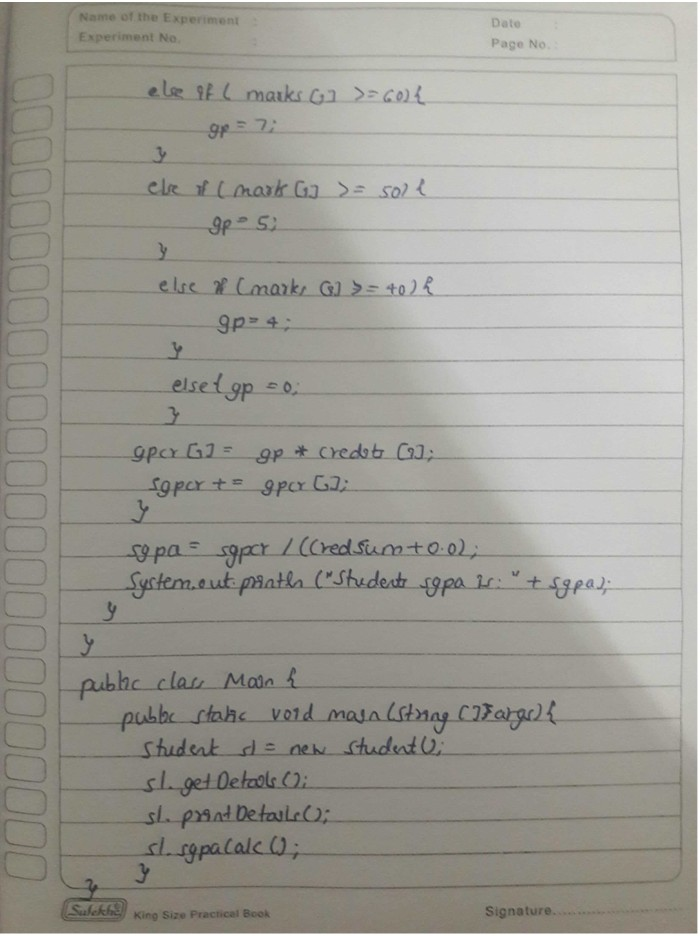 Name of the Experiment :
Date :
Experiment No. :
Page No. :
else if ( marks [i] >= 60) {
gp = 7;
}
else if ( mark [i] >= 50) {
gp = 5;
}
else if (marks [i] >= 40) {
gp = 4;
}
else { gp = 0;
}
gpcr [i] = gp * credits [i];
sgpcr += gpcr [i];
}
sgpa = sgpcr / ((credsum + 0.0);
System.out.println ("Students sgpa is: " + sgpa);
}
}
public class Main {
public static void main (String [] args) {
Student s1 = new Student();
s1. getDetails ();
s1. printDetails ();
s1. sgpaCalc ();
}
}
Sulekha King Size Practical Book
Signature....................